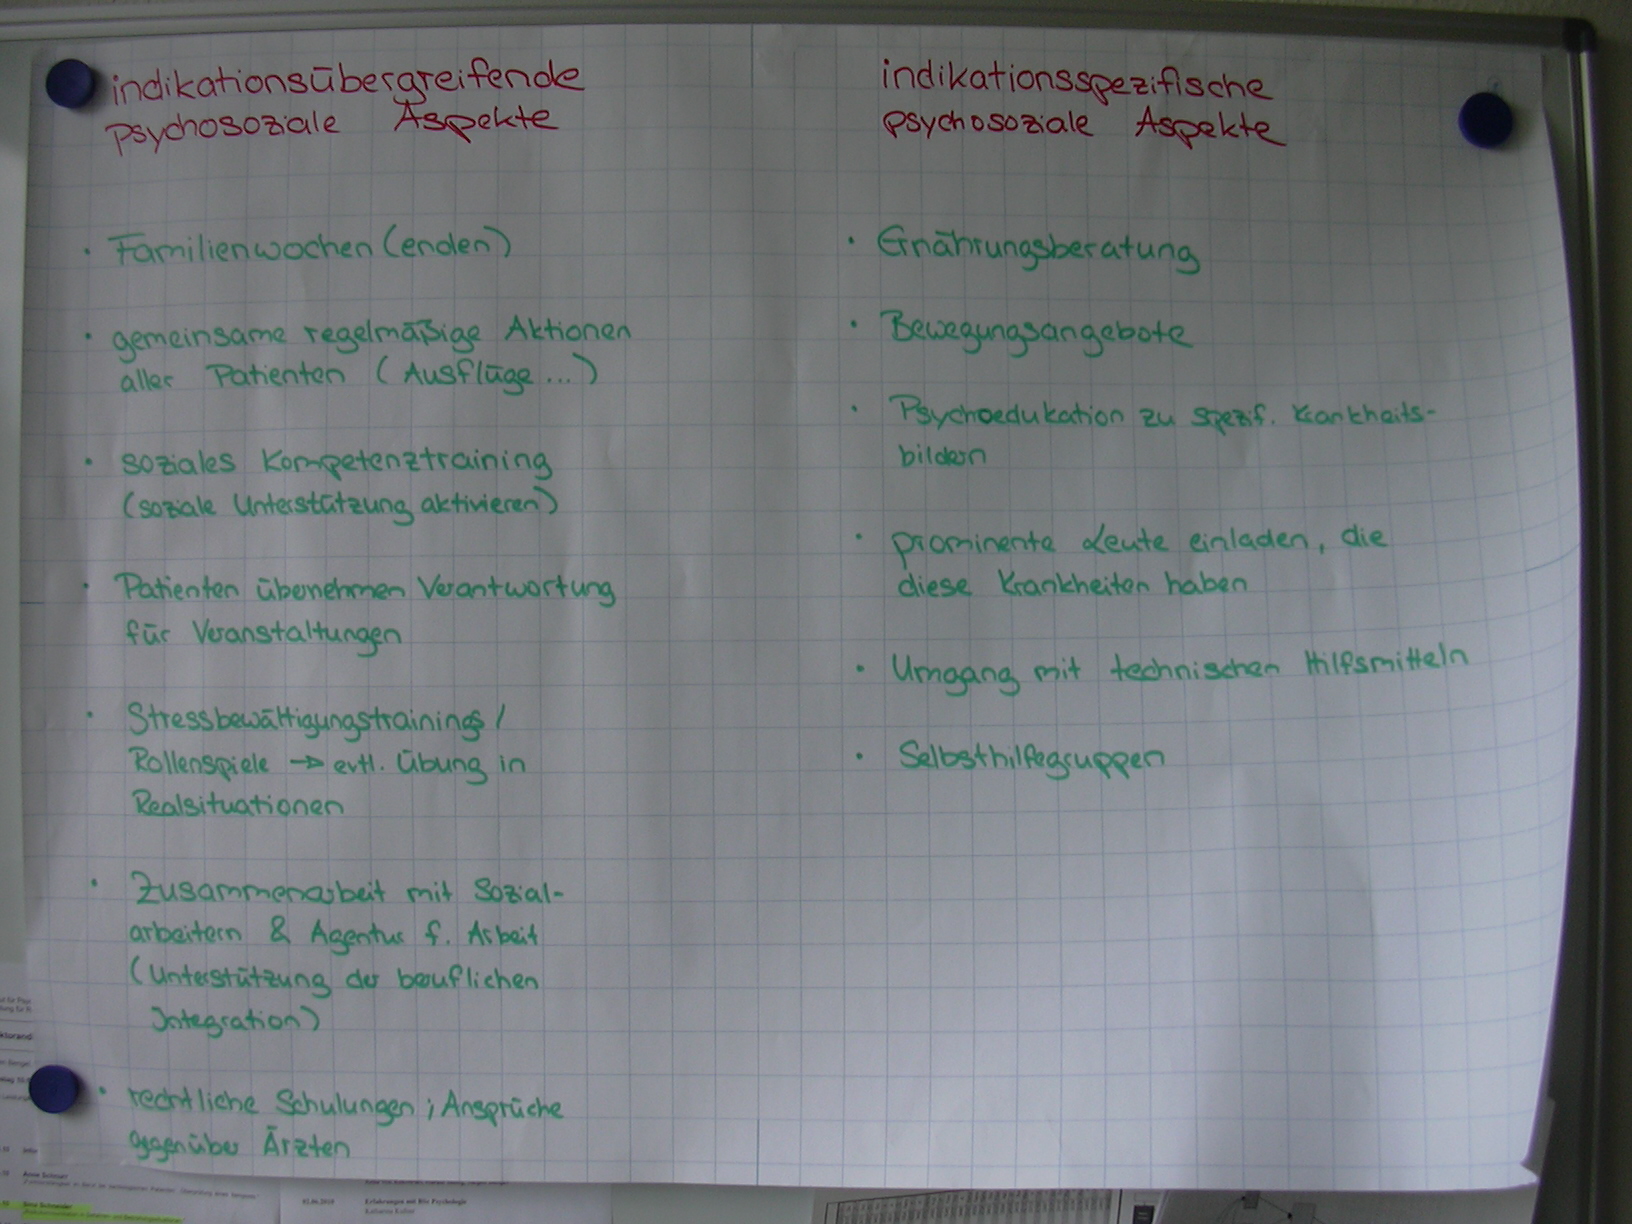 indikationsübergreifende
psychosoziale Aspekte
· Familienwochen (enden)
· gemeinsame regelmäßige Aktionen
aller Patienten (Ausflüge...)
· soziales Kompetenztraining
(soziale Unterstützung aktivieren)
· Patienten übernehmen Verantwortung
für Veranstaltungen
· Stressbewältigungstrainings /
Rollenspiele → evtl. Übung in
Realsituationen
· Zusammenarbeit mit Sozial-
arbeitern & Agentur f. Arbeit
(Unterstützung der beruflichen
Integration)
· rechtliche Schulungen; Ansprüche
gegenüber Ärzten
indikationsspezifische
psychosoziale Aspekte
· Ernährungsberatung
· Bewegungsangebote
· Psychoedukation zu spezif. Krankheits-
bildern
· prominente Leute einladen, die
diese Krankheiten haben
· Umgang mit technischen Hilfsmitteln
· Selbsthilfegruppen
Erfahrungen mit Bio Psychologie